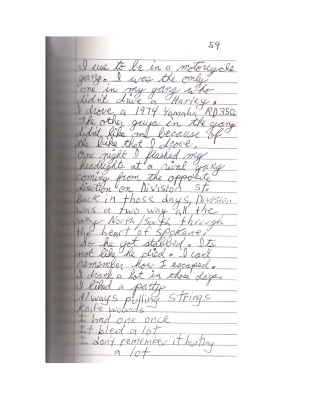 59
I use to be in a motorcycle
gang. I was the only
one in my gang who
didn't drive a Harley.
I drove a 1974 Yamaha RD350
The other guys in the gang
didnt like me because of
the bike that I drove.
One night I flashed my
headlight at a rival gang
coming from the opposite
direction on Division St.
Back in those days, Division
was a two way all the
way North/South through
the heart of Spokane.
So he got stabbed. Its
not like he died. I can't
remember how I escaped.
I drank a lot in those days.
I liked a party
Always pulling strings
Knife wounds
I had one once
It bled a lot
I don't remember it hurting
a lot